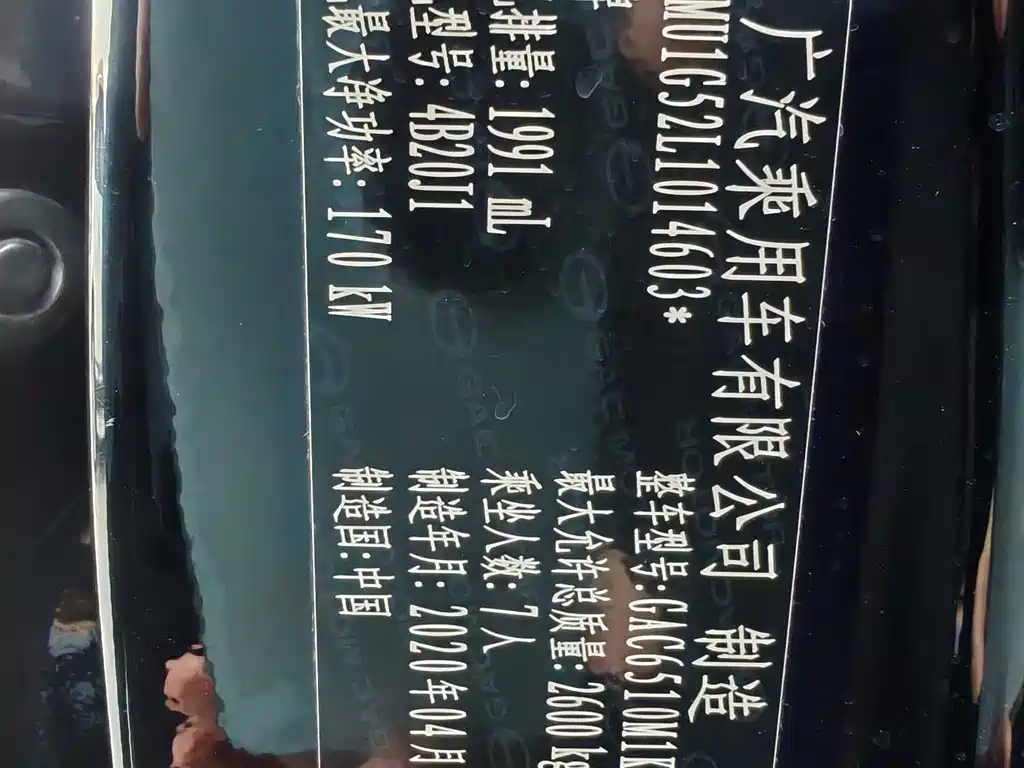 广汽乘用车有限公司 制造
MU1G52L1014603* 整车型号:GAC6510M1K
最大允许总质量: 2600 kg
排量: 1991 mL 乘坐人数: 7人
型号: 4B20J1 制造年月: 2020年04月
最大净功率: 170 kW 制造国: 中国